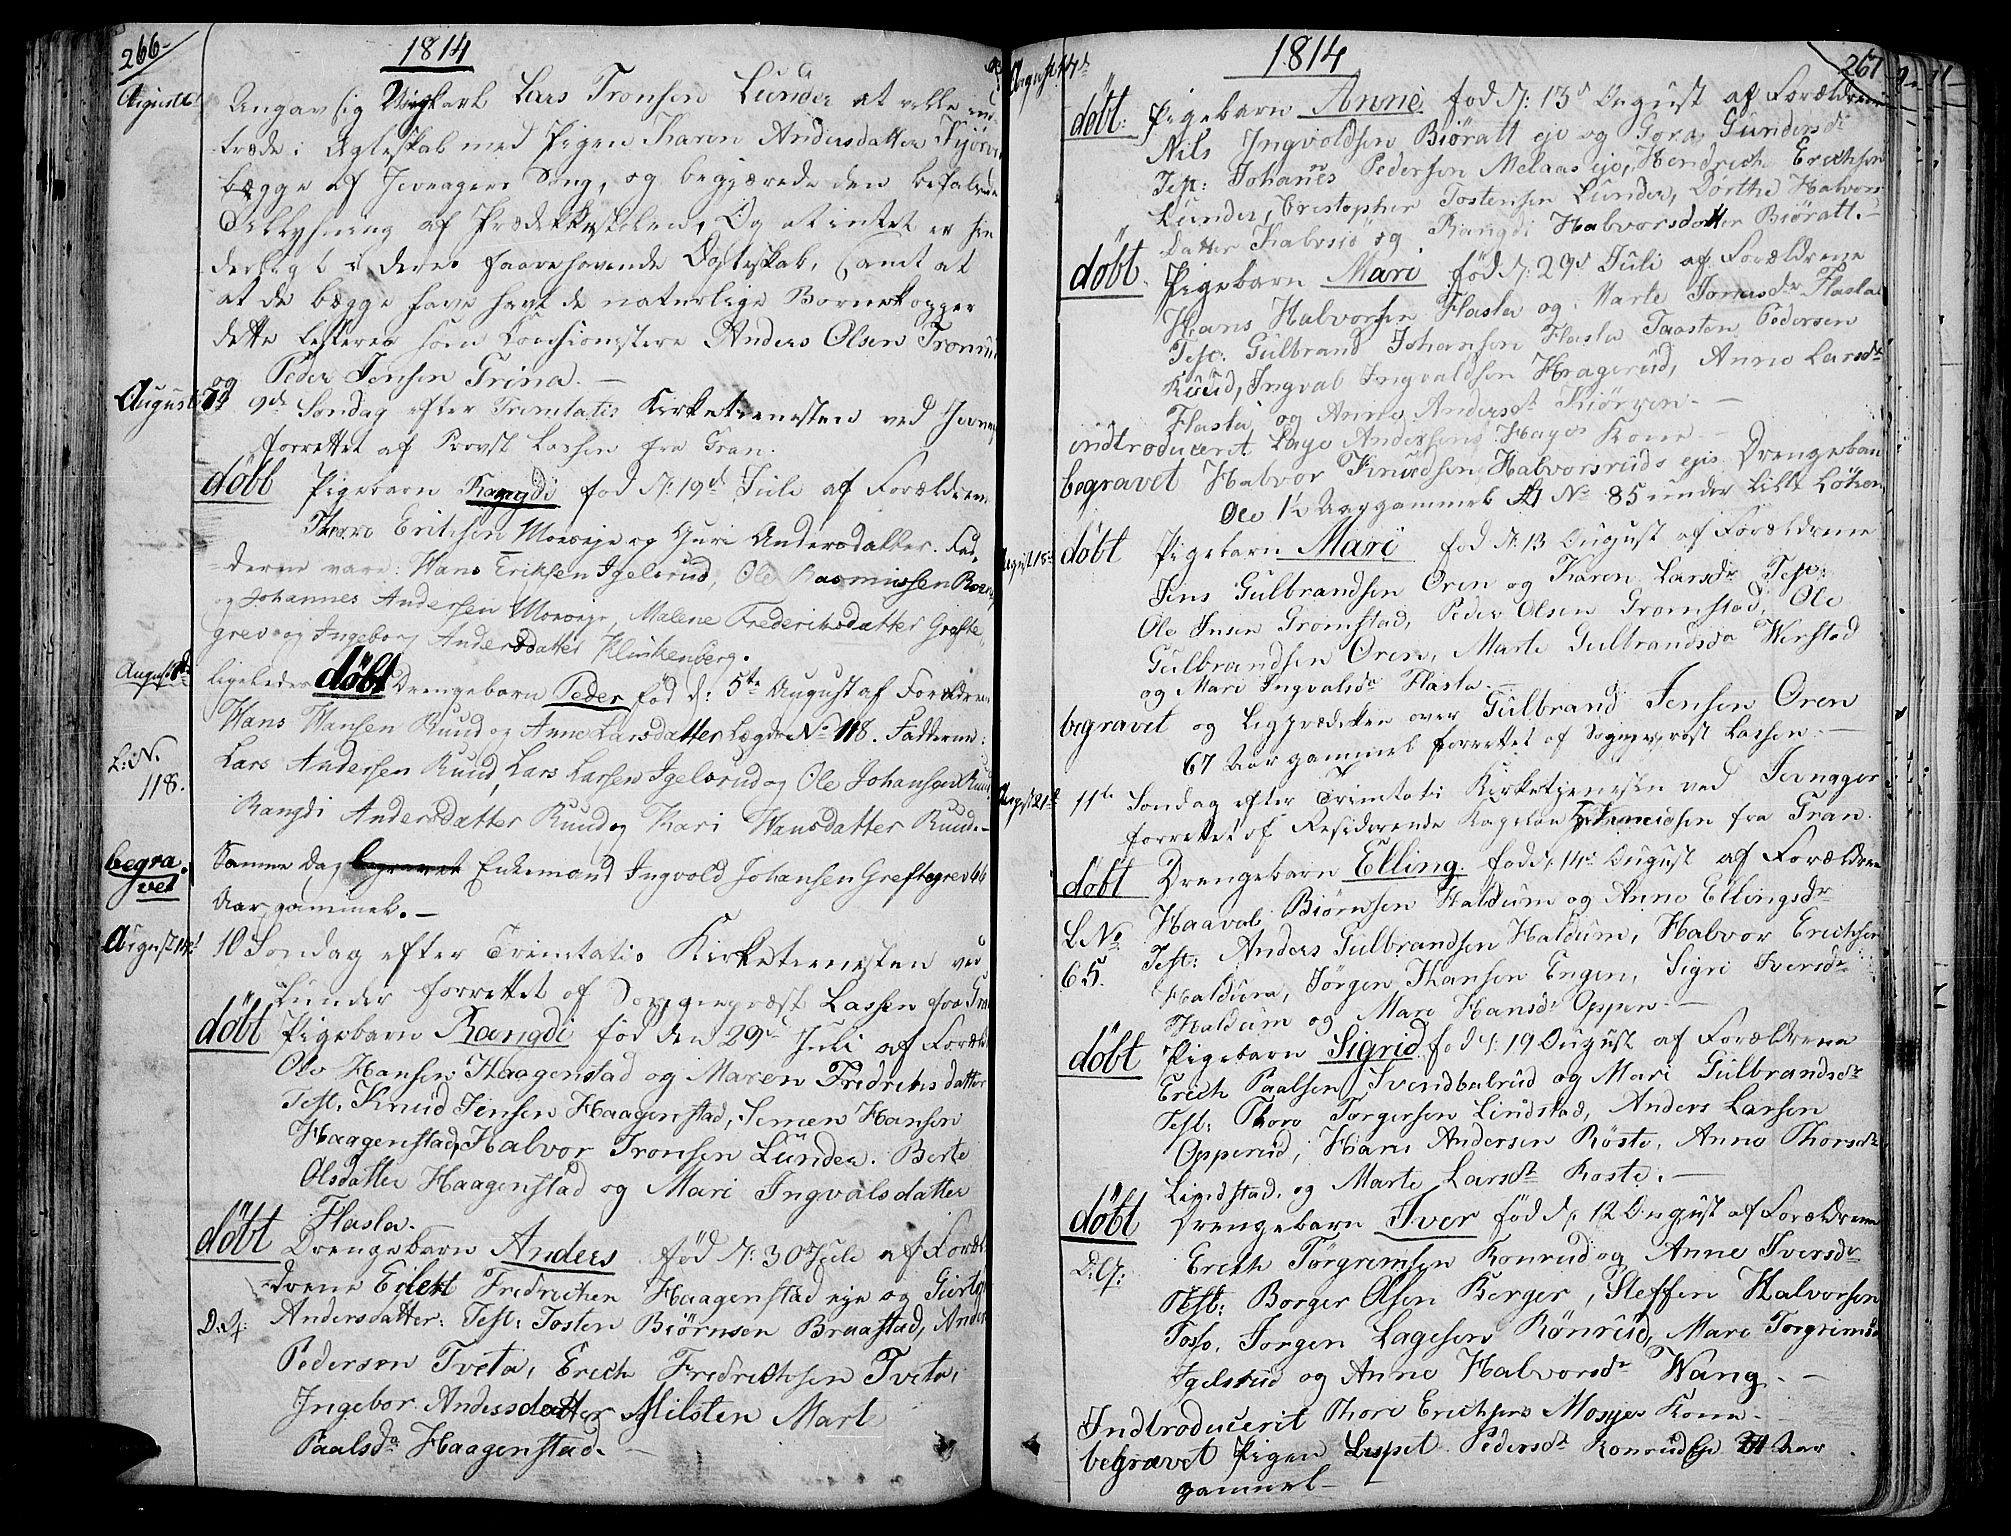 266
1814
August 6
Angav sig Ungkarl Lars Tronsen Lunder at ville ind
træde i Egteskab med Pigen Karen Andersdatter Kjørven
begge af Jevnager Sogn, og begjærede den befalede
Tillysning af Prædikestolen, Og at intet er hin
derligt i deres forrehavende Egteskab, samt at
at de begge have havt de naturlige Børnekopper
dette testerer som Cautionister Anders Olsen Tronrud
og Peder Jensen Grina. —
August 7d 9de Søndag efter Trinitatis Kirketienesten ved Jevnager
forrettet af Provst Lassen fra Gran.
döbt Pigebarn Rangdi fød d: 19d Juli af Forældrene
Thore Erichsen Moeseje og Guri Andersdatter. Fad-
-derne vare: Hans Eriksen Igelsrud, Ole Rasmussen
og Johannes Andersen Moeseje, Malene Frederiksdatter Grefte-
grev og Ingeborg Andersdatter Klinkenberg.
August ligeledes döbt Drengebarn Peder fød d: 5te August af Forældrene
Hans Hansen Ruud og Anne Larsdatter Lægds No 118. Fadderne:
L: N. 118.
Lars Andersen Ruud, Lars Larsen Igelsrud og Ole Johansen Ruud
Rangdi Andersdatter Ruud og Kari Hansdatter Ruud.—
begravet Samme Dag begravet Enkemand Ingvold Johansen Greftegrev 66
Aar gammel. —
August 14d 10 Søndag efter Trinitatis Kirketienesten ved
Lunder forrettet af Sognepræst Lassen fra Gran
döbt Pigebarn Rangdi fød den 29d Juli af Foræld
Ole Hansen Haagenstad og Maren Fredrichsdatter
Test. Knud Jensen Haagenstad, Simen Hansen
Haagenstad, Halvor Tronsen Lunder. Berte
Olsdatter Haagenstad og Mari Ingvalsdatter
Flasla.
döbt Drengebarn Anders fød d: 30 Juli af Foræl
drene Eilert Fredrichsen Haagenstad eje og Giertrud
D:Q: Andersdatter: Test: Tosten Biörnsen Braastad, Anders
Pedersen Tveta, Erich Fredrichsen Tveta,
Ingebor Andersdatter Milsten Marte
Paalsda Haagenstad. —
1814
267
August 14d
döbt: Pigebarn Anne fød d: 13d August af Forældrene
Nils Ingvoldsen Biöratt eje og Gora Gundersdr
Test: Johanes Pedersen Melaas eje, Hendrich Erichsen
Lunder, Cristopher Tostensen Lunder, Dorthe Halvors
datter Kalvsiø og Rangdi Halvorsdatter Biöratt. —
döbt. Pigebarn Mari fød d: 29d Juli af Forældrene
Hans Halvorsen Flasla og Marte Jonasdr Flasla
Test: Gulbrand Johansen Flasla Taasten Pedersen
Ruud, Ingval Ingvaldsen Hragerud, Anne Larsdr
Flasla og Anne Andersdr Kiörven —
indtroduceret Lage Andersens Hages Kone —
begravet Halvor Knudsen Halvorsruds ejes Drengebarn
Ole 1½ Aar gammel No 85 under Litr. Løken
August 15d döbt Pigebarn Mari fød d: 13 August af Forældrene
Jens Gulbrandsen Oren og Karen Larsdr Test:
Ole Jensen Gromstad, Peder Olsen Gromstad, Ole
Gulbrandsen Oren, Marte Gulbrandsda Werstad
og Mari Ingvalsda Flasla. —
begravet og Ligprædiken over Gulbrand Jensen Oren
67 Aar gammel forrettet af Sognepræst Lassen. —
August 21d 11te Søndag efter Trinitatis Kirketjenesten ved Jevnager
forrettet af Residerende Kapelan Heltmundsen fra Gran.
döbt Drengebarn Elling fød d: 14d August af Forældrene
Haaval Biörnsen Haldum og Anne Ellingsdr
L No 65. Test: Anders Gulbrandsen Haldum, Halvor Erichsen
Haldum, Jörgen Hansen Engen, Sigri Iversdr
Haldum og Mari Hansdr Oppen. —
döbt Pigebarn Sigrid fød d: 19 August af Forældrene
Erich Paalsen Svendbalrud og Mari Gulbrandsdr
Test: Thore Torgersen Lindstad, Anders Larsen
Opperud, Hans Andersen Röste, Anne Thorsdr
Lindstad, og Marte Larsdr Roste. —
döbt Drengebarn Iver fød d: 12 August af Forældrene
D:Q: Erich Torgrimsen Ronrud og Anne Iversdr
Test: Borger Olsen Berger, Steffen Halvorsen
Tosso, Jorgen Lagesen Rönrud, Mari Torgrimsd
Igelsrud og Anne Halvorsdr Wang. —
Indtroducerit Thore Erichsens Mosejes Kone —
begravet Pigen Lispet Pedersdr Ronrudeje 21 Aar
gammel —